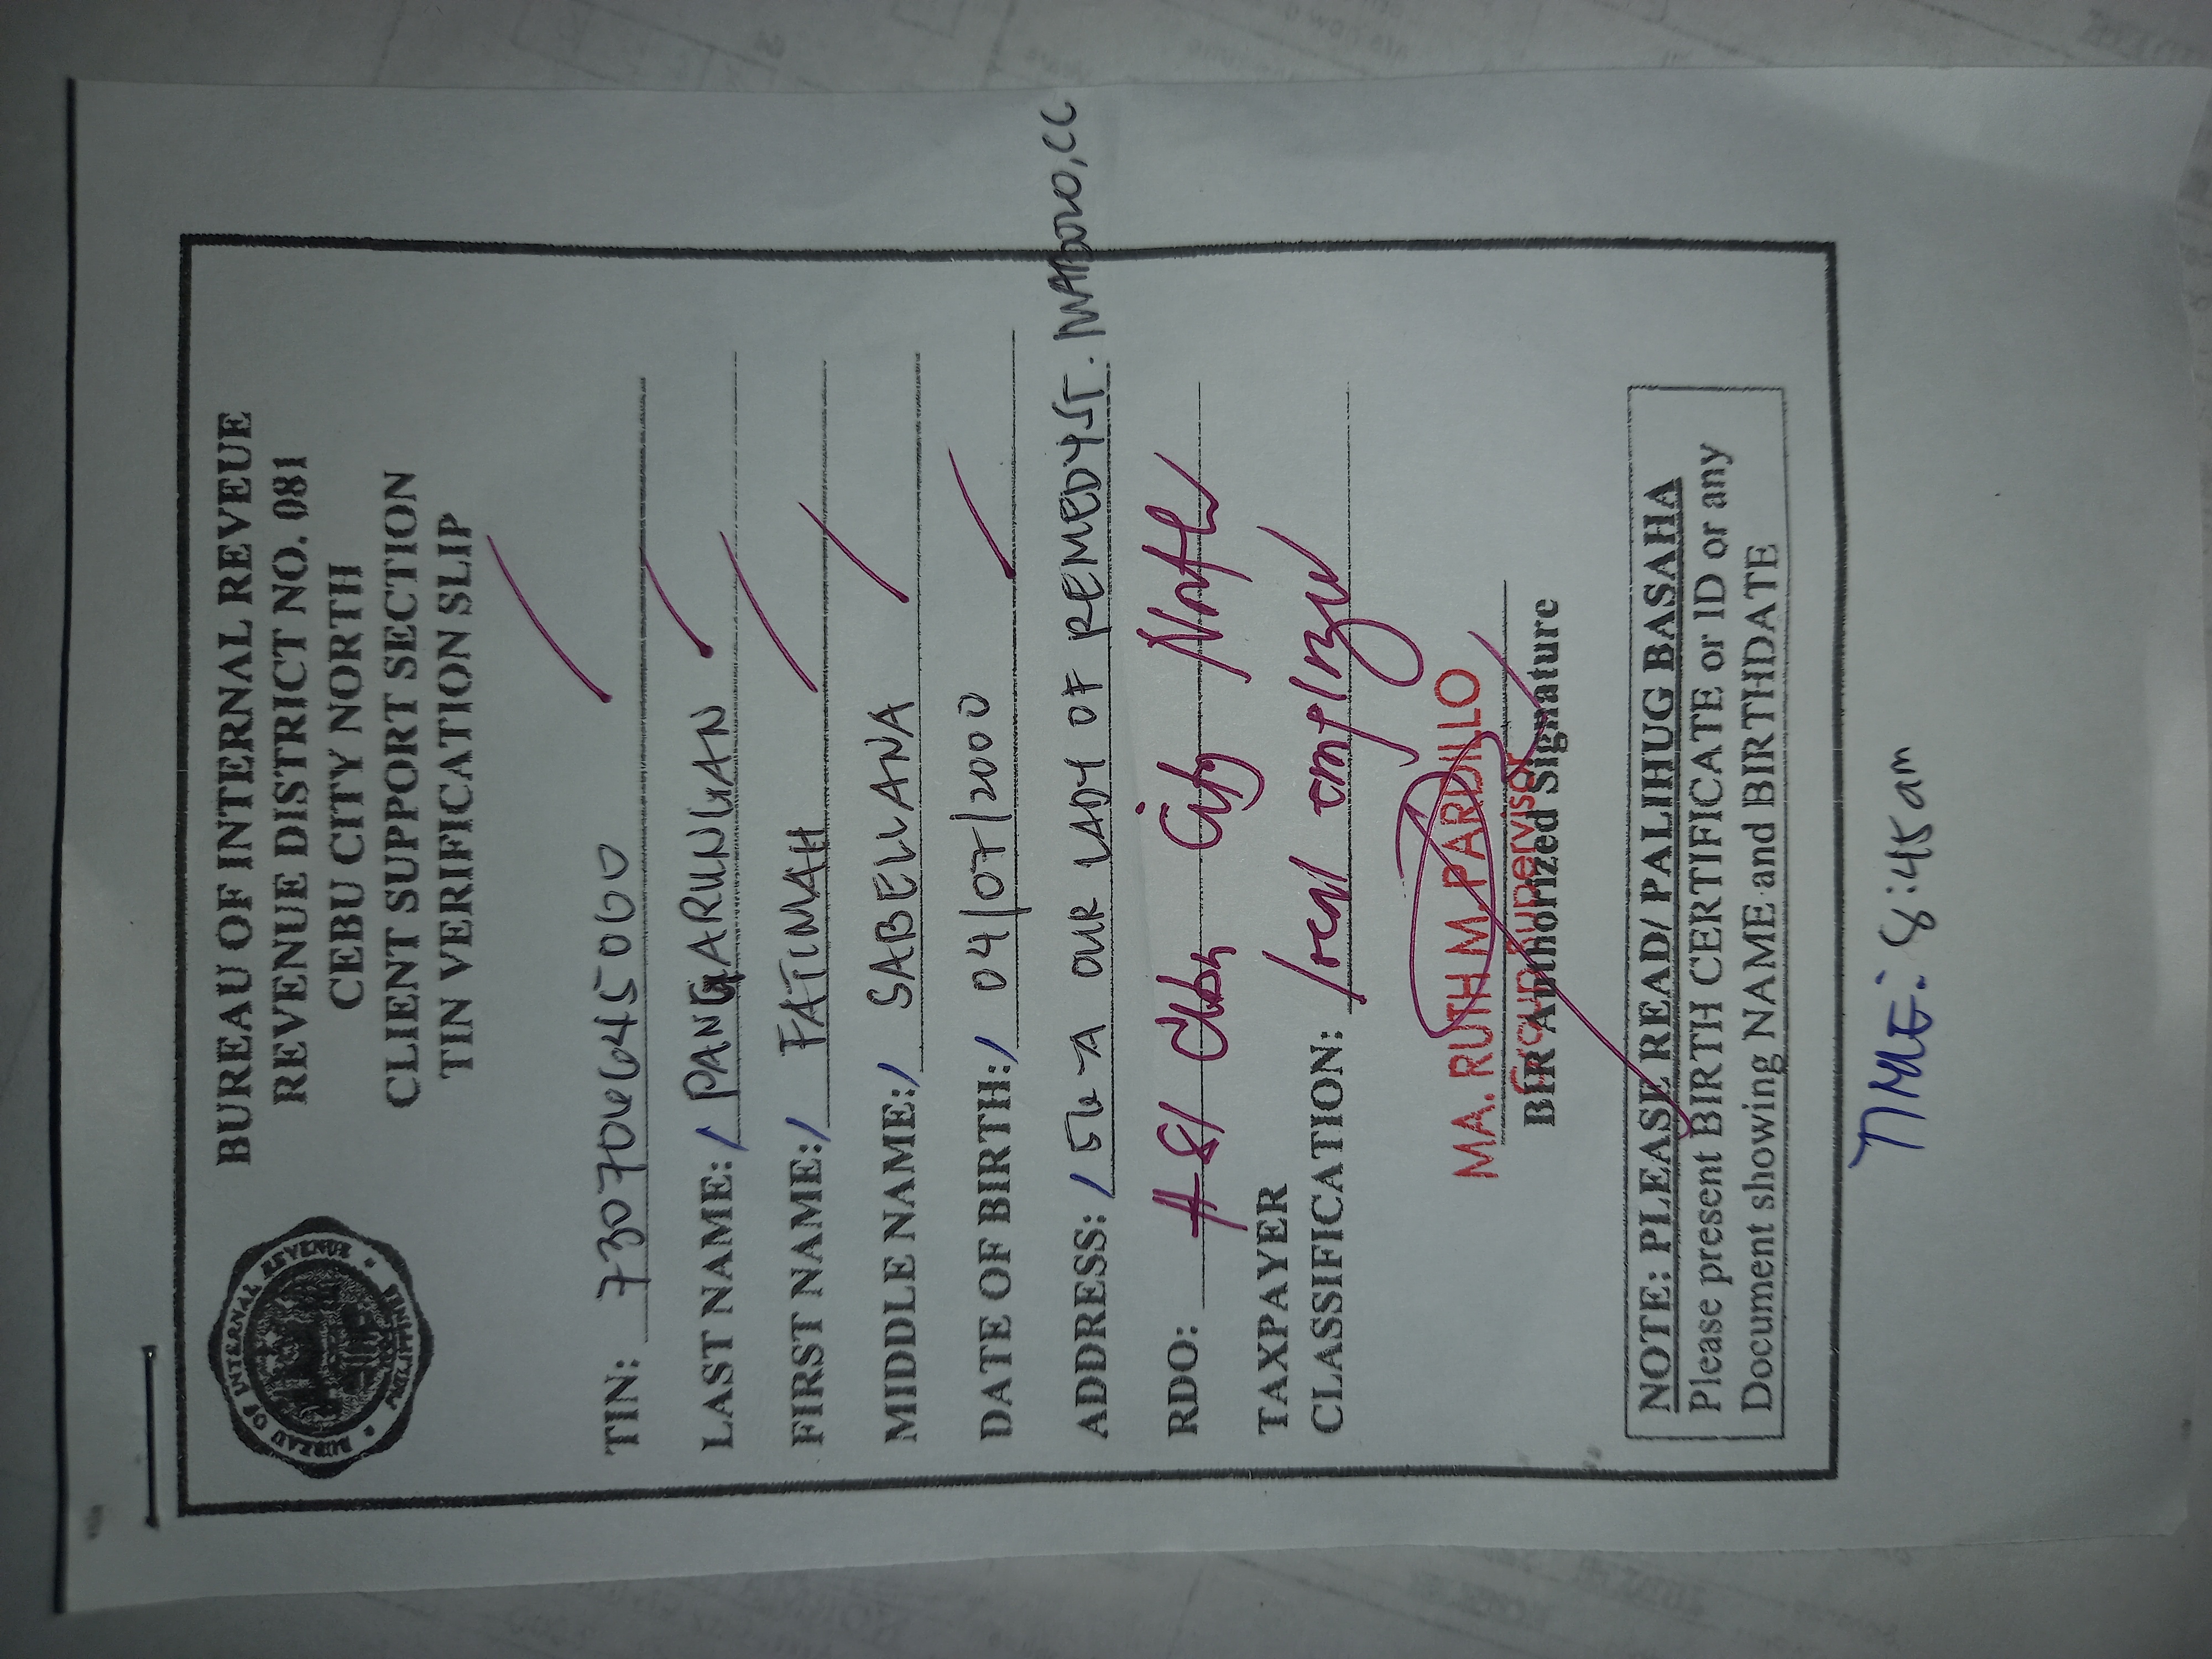 BUREAU OF INTERNAL REVEUE
REVENUE DISTRICT NO. 081
CEBU CITY NORTH
CLIENT SUPPORT SECTION
TIN VERIFICATION SLIP
BUREAU OF INTERNAL REVENUE
TIN: 730706645000
LAST NAME: / PANGARUNGAN
FIRST NAME: / FATIMAH
MIDDLE NAME: / SABELLANA
DATE OF BIRTH: / 04/07/2000
ADDRESS: / 56-A OUR LADY OF REMEDY ST. MABOLO, CC
RDO: # 81 Cebu City North
TAXPAYER
CLASSIFICATION: local employee
MA. RUTH M. PARDILLO
Group Supervisor
BIR Authorized Signature
NOTE: PLEASE READ/ PALIHUG BASAHA
Please present BIRTH CERTIFICATE or ID or any
Document showing NAME and BIRTHDATE
TIME: 8:45 am